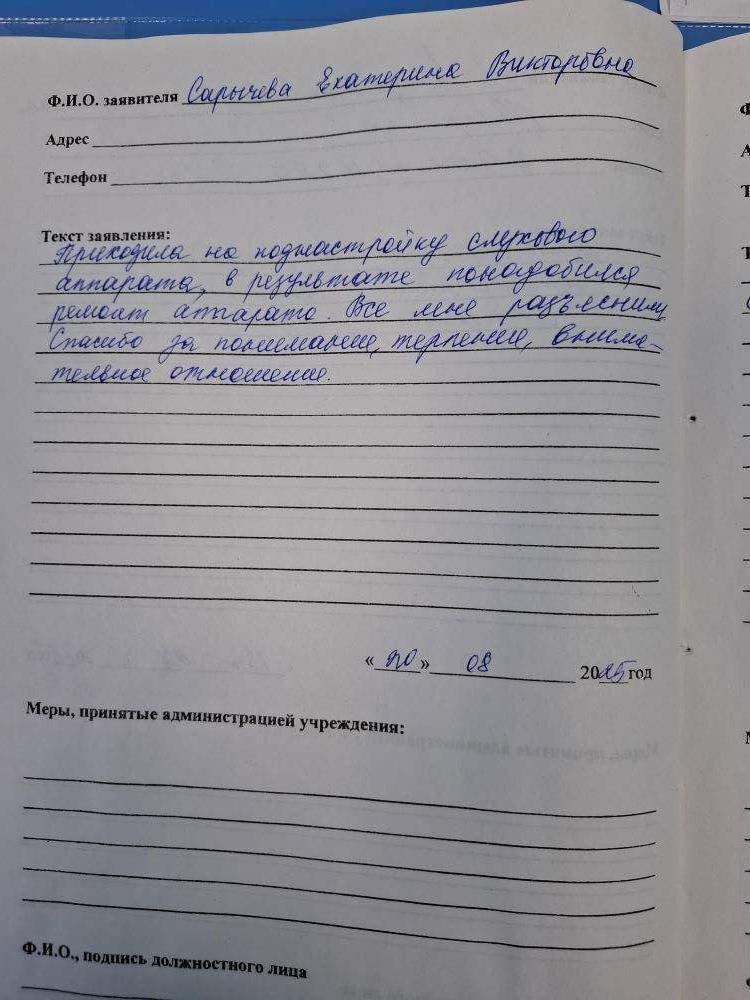 Ф.И.О. заявителя Сарычева Екатерина Викторовна
Адрес
Телефон
Текст заявления:
Приходила на поднастройку слухового
аппарата, в результате понадобился
ремонт аппарата. Все мне разъяснили
Спасибо за понимание, терпение, внима-
тельное отношение.
«20» 08 2025 год
Меры, принятые администрацией учреждения:
Ф.И.О., подпись должностного лица